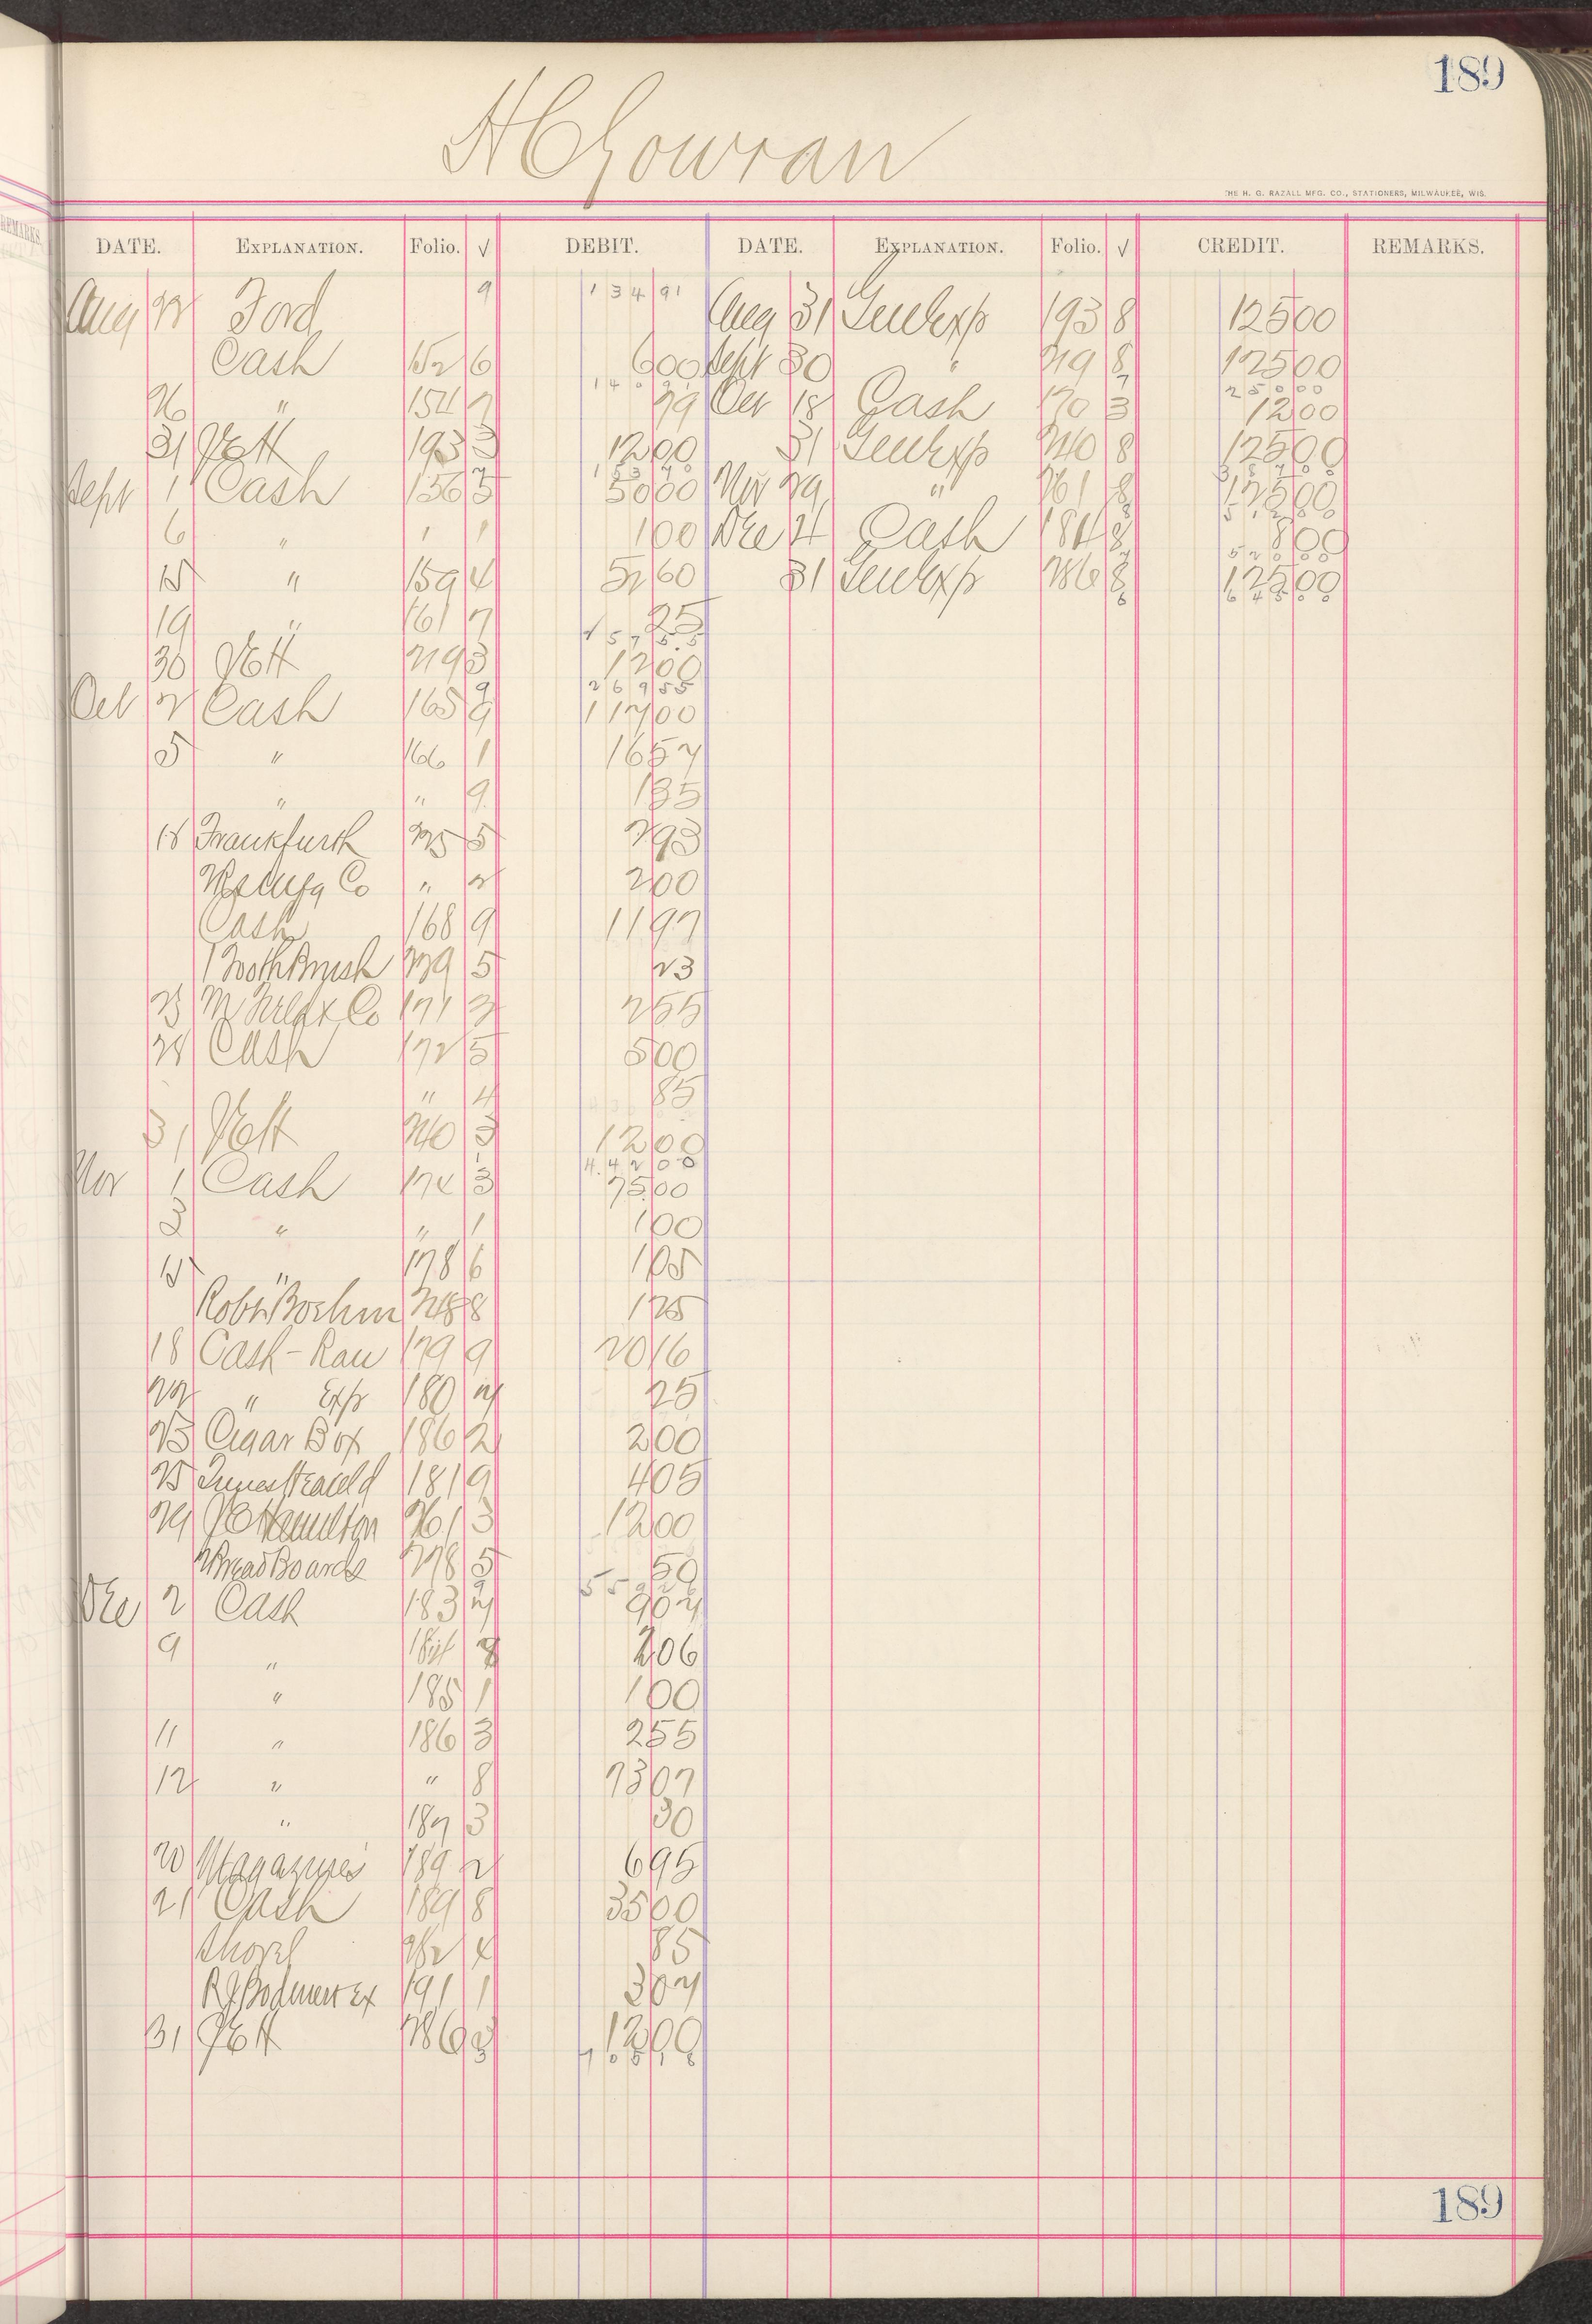 189
H C Gowran
THE H. G. RAZALL MFG. CO., STATIONERS, MILWAUKEE, WIS.
DATE. EXPLANATION. Folio. √ DEBIT. DATE. EXPLANATION. Folio. √ CREDIT. REMARKS.
Aug 22 Ford 9 134 91 Aug 31 Genl Exp 193 8 125 00
Cash 152 6 6 00 Sept 30 " 219 8 125 00
26 " 154 2 79 Oct 18 Cash 170 3 12 00
31 JEH 193 3 12 00 31 Genl Exp 240 8 125 00
Sept 1 Cash 156 3 50 00 Nov 29 " 261 8 125 00
6 " " 1 1 00 Dec 4 Cash 184 8 8 00
15 " 159 4 52 60 31 Genl Exp 286 8 125 00
19 " 161 7 25
30 JEH 219 3 12 00
269 55
Oct 2 Cash 165 9 112 00
5 " 166 1 16 52
" " 9 1 35
18 Frankfurth 225 5 2 93
Co " 2 2 00
Cash 168 9 11 97
1 Tooth Brush 229 5 23
23 Co 171 3 2 55
28 Cash 172 5 5 00
" 4 85
31 JEH 240 3 12 00
442 00
Nov 1 Cash 174 3 75 00
2 " " 1 1 00
15 " 178 6 1 05
Robt Boehm 248 8 1 25
18 Cash - Rau 179 9 20 16
22 " Exp 180 2 25
23 Cigar Box 186 2 2 00
25 181 9 4 05
29 JE Hamilton 261 3 12 00
2 Bread Boards 278 5 50
Dec 2 Cash 183 2 9 02
9 " 184 8 2 06
" 185 1 1 00
11 " 186 3 2 55
12 " " 8 73 07
" 187 3 30
20 Magazines 189 2 6 95
21 Cash 189 8 35 00
Shovel 282 4 85
Ex 191 1 3 02
31 JEH 286 3 12 00
189